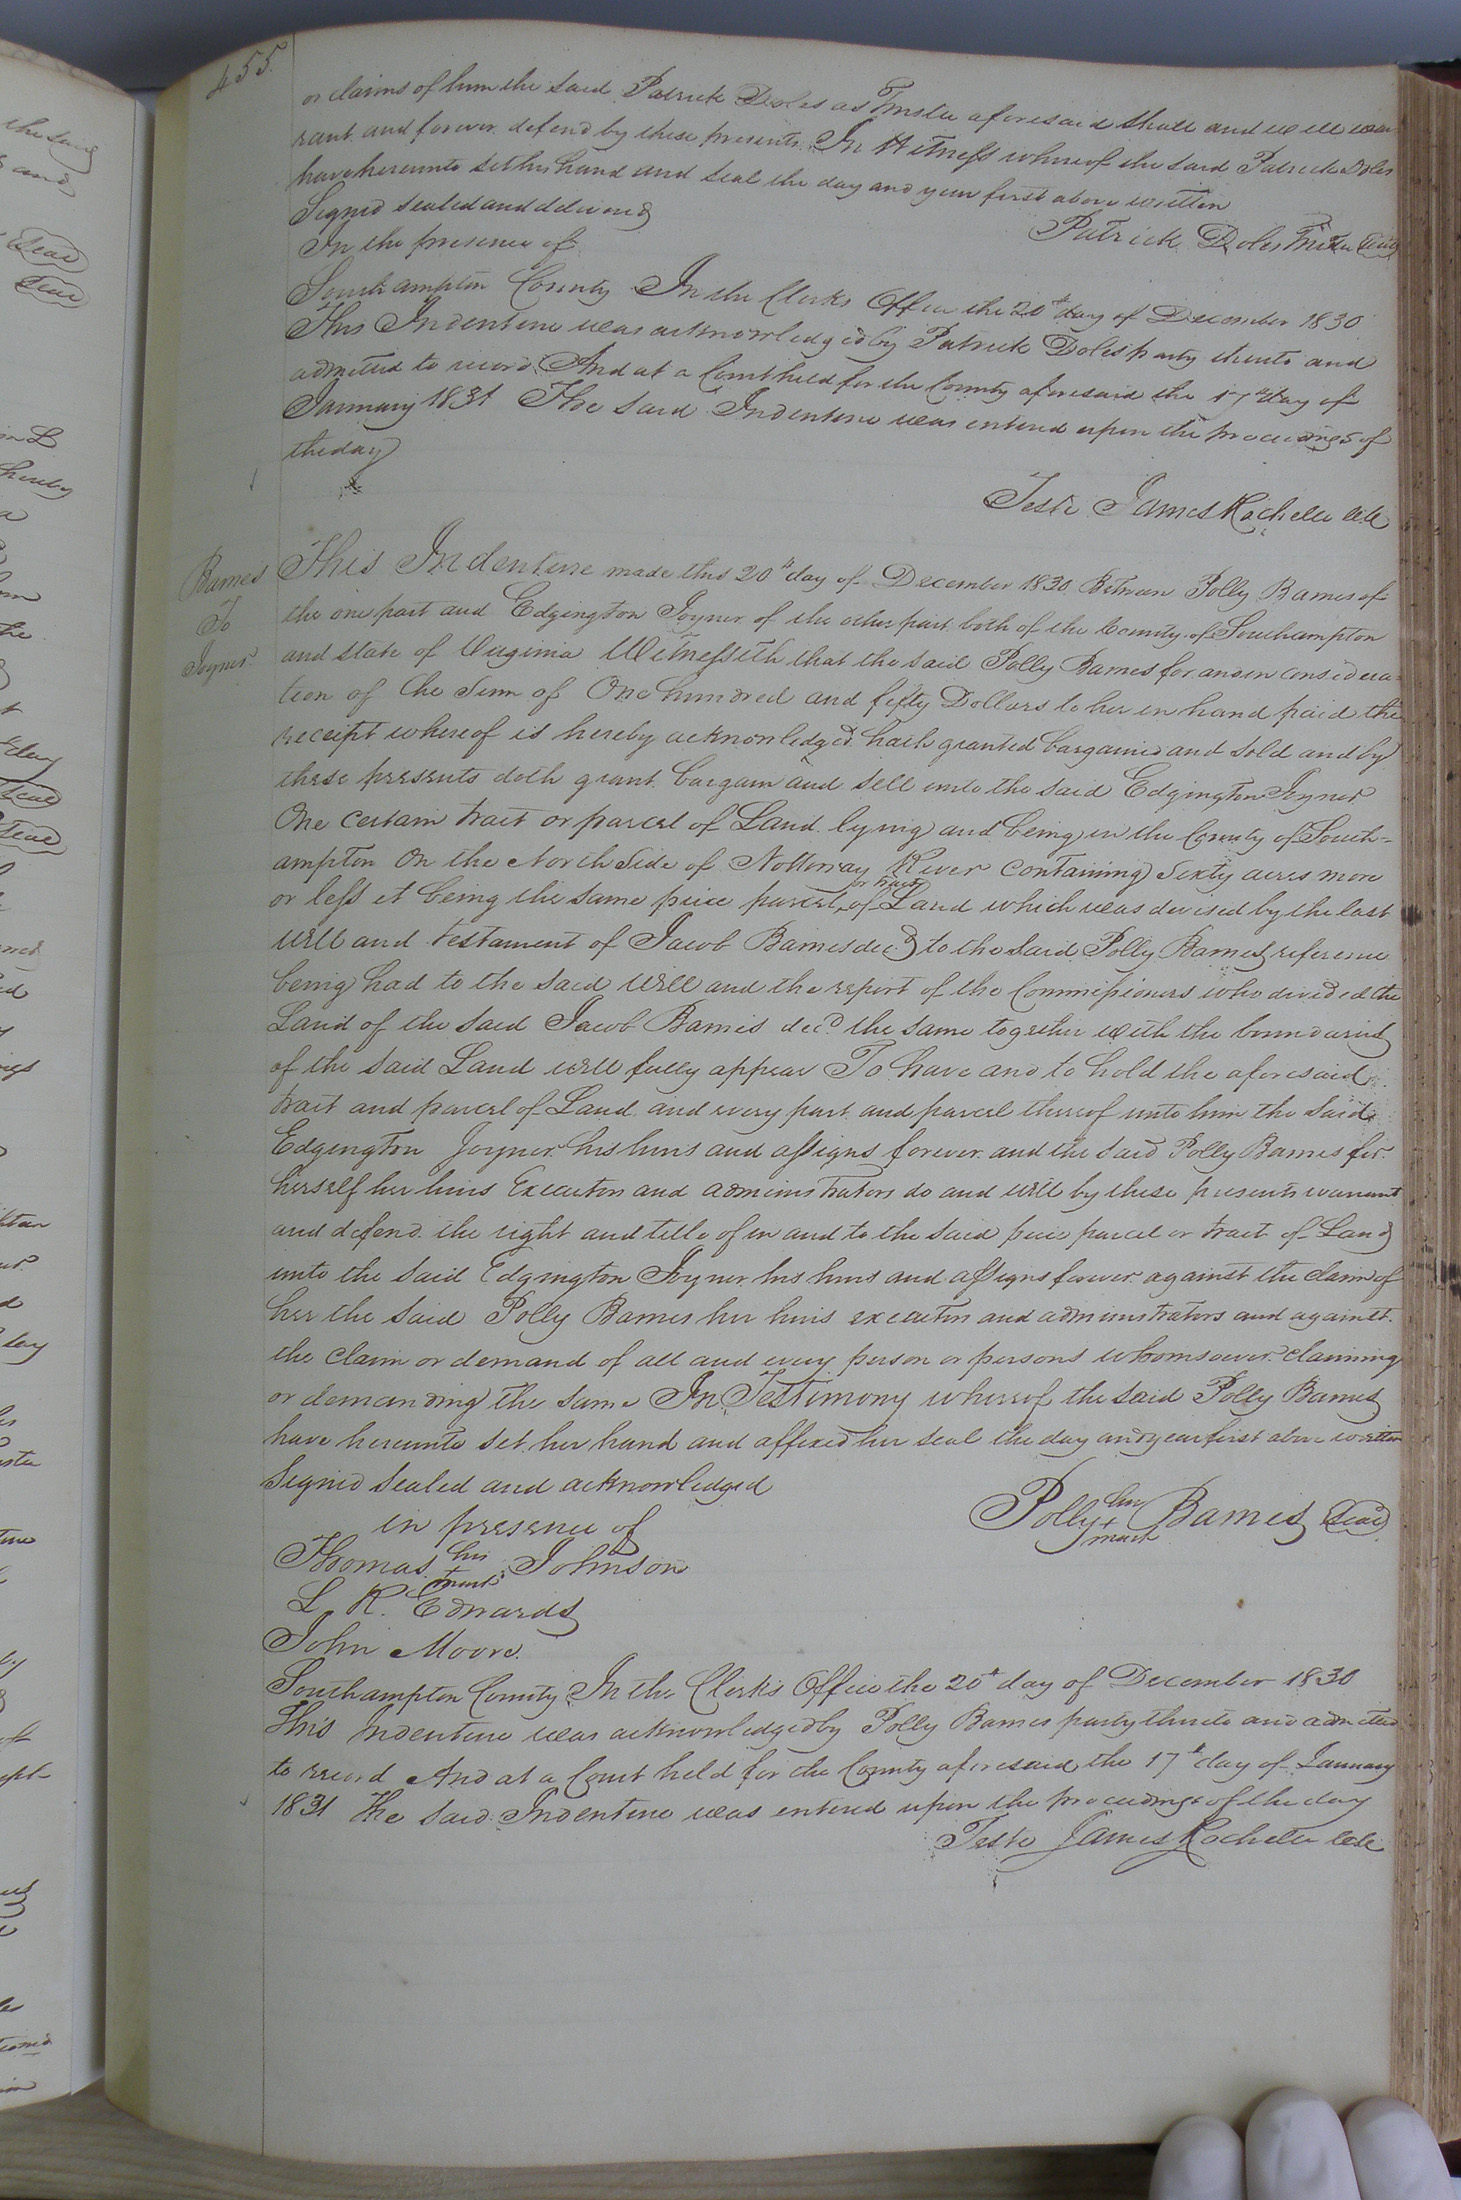 455
or claims of him the said Patrick Doles as Trustee aforesaid shall and will war
rant and forever defend by these presents In Witness whereof the said Patrick Doles
have hereunto set his hand and seal the day and year first above written
Signed sealed and delivered
In the presence of
Patrick Doles Trustee Seal
Southampton County In the Clerks Office the 20th day of December 1830
This Indenture was acknowledged by Patrick Doles party thereto and
admitted to record And at a Court held for the County aforesaid the 17th day of
January 1831 The said Indenture was entered upon the proceedings of
the day
Teste James Rochelle
Barnes
To
Joyner
This Indenture made this 20th day of December 1830 Between Polly Barnes of
the one part and Edgington Joyner of the other part both of the County of Southampton
and state of Virginia Witnesseth that the said Polly Barnes for and in considera
tion of the Sum of One hundred and fifty Dollars to her in hand paid the
receipt whereof is hereby acknowledged hath granted bargained and sold and by
these presents doth grant bargain and sell unto the said Edgington Joyner
One certain tract or parcel of Land lying and being in the County of South=
ampton On the North side of Nottoway River containing sixty acres more
or less it being the same piece parcel or tract of Land which was devised by the last
will and testament of Jacob Barnes decd to the said Polly Barnes reference
being had to the said will and the report of the Commissioners who divided the
Land of the said Jacob Barnes decd the same together with the boundaries
of the said Land will fully appear To have and to hold the aforesaid
tract and parcel of Land and every part and parcel thereof unto him the said
Edgington Joyner his heirs and assigns forever and the said Polly Barnes for
herself her heirs Executors and administrators do and will by these presents warrant
and defend the right and title of in and to the said piece parcel or tract of Land
unto the said Edgington Joyner his heirs and assigns forever against the claim of
her the said Polly Barnes her heirs executors and administrators and against
the claim or demand of all and every person or persons whomsoever claiming
or demanding the same In Testimony whereof the said Polly Barnes
have hereunto set her hand and affixed her seal the day and year first above written
Signed sealed and acknowledged
in presence of
Polly her + mark Barnes Seal
Thomas his + mark Johnson
L. R. Edwards
John Moore
Southampton County In the Clerk's Office the 20th day of December 1830
This Indenture was acknowledged by Polly Barnes party thereto and admitted
to record And at a Court held for the County aforesaid the 17th day of January
1831 The said Indenture was entered upon the proceedings of the day
Teste James Rochelle